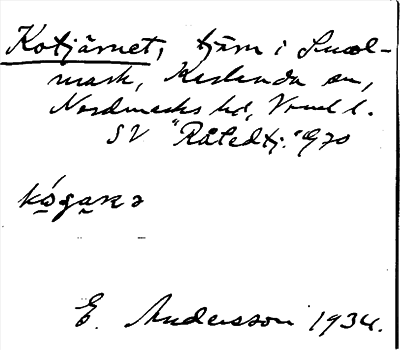 Kotjärnet, tjärn i Smol-
mark, Karlanda sn,
Nordmarks hd, Vrml l.
SV "Råtedtj." G 70
kógaṇə
E. Andersson 1934.